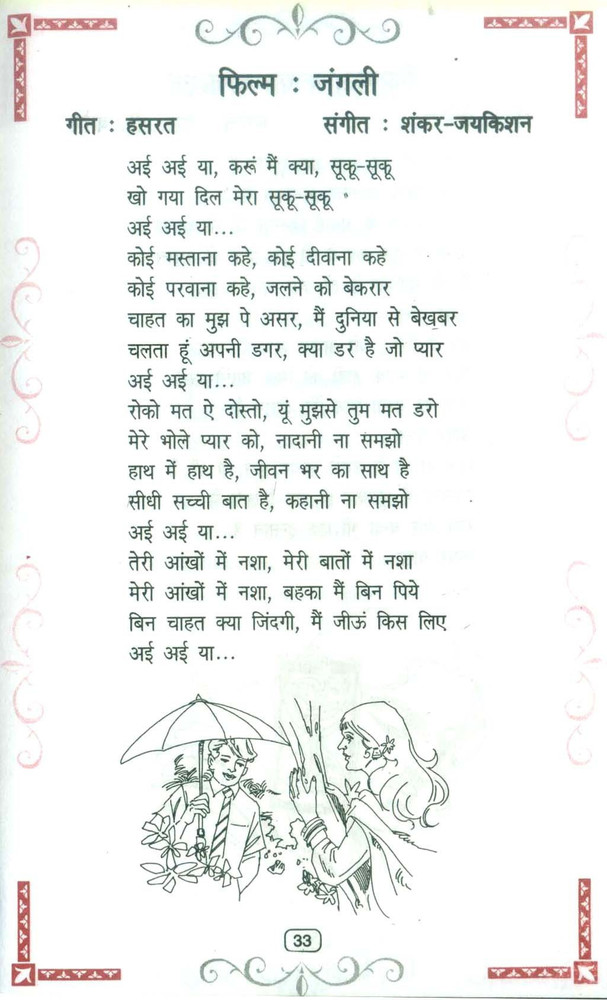 फिल्म : जंगली
गीत : हसरत संगीत : शंकर-जयकिशन
अई अई या, करूं मैं क्या, सूकू-सूकू
खो गया दिल मेरा सूकू-सूकू
अई अई या...
कोई मस्ताना कहे, कोई दीवाना कहे
कोई परवाना कहे, जलने को बेकरार
चाहत का मुझ पे असर, मैं दुनिया से बेख़बर
चलता हूं अपनी डगर, क्या डर है जो प्यार
अई अई या...
रोको मत ऐ दोस्तो, यूं मुझसे तुम मत डरो
मेरे भोले प्यार को, नादानी ना समझो
हाथ में हाथ है, जीवन भर का साथ है
सीधी सच्ची बात है, कहानी ना समझो
अई अई या...
तेरी आंखों में नशा, मेरी बातों में नशा
मेरी आंखों में नशा, बहका मैं बिन पिये
बिन चाहत क्या जिंदगी, मैं जीऊं किस लिए
अई अई या...
33